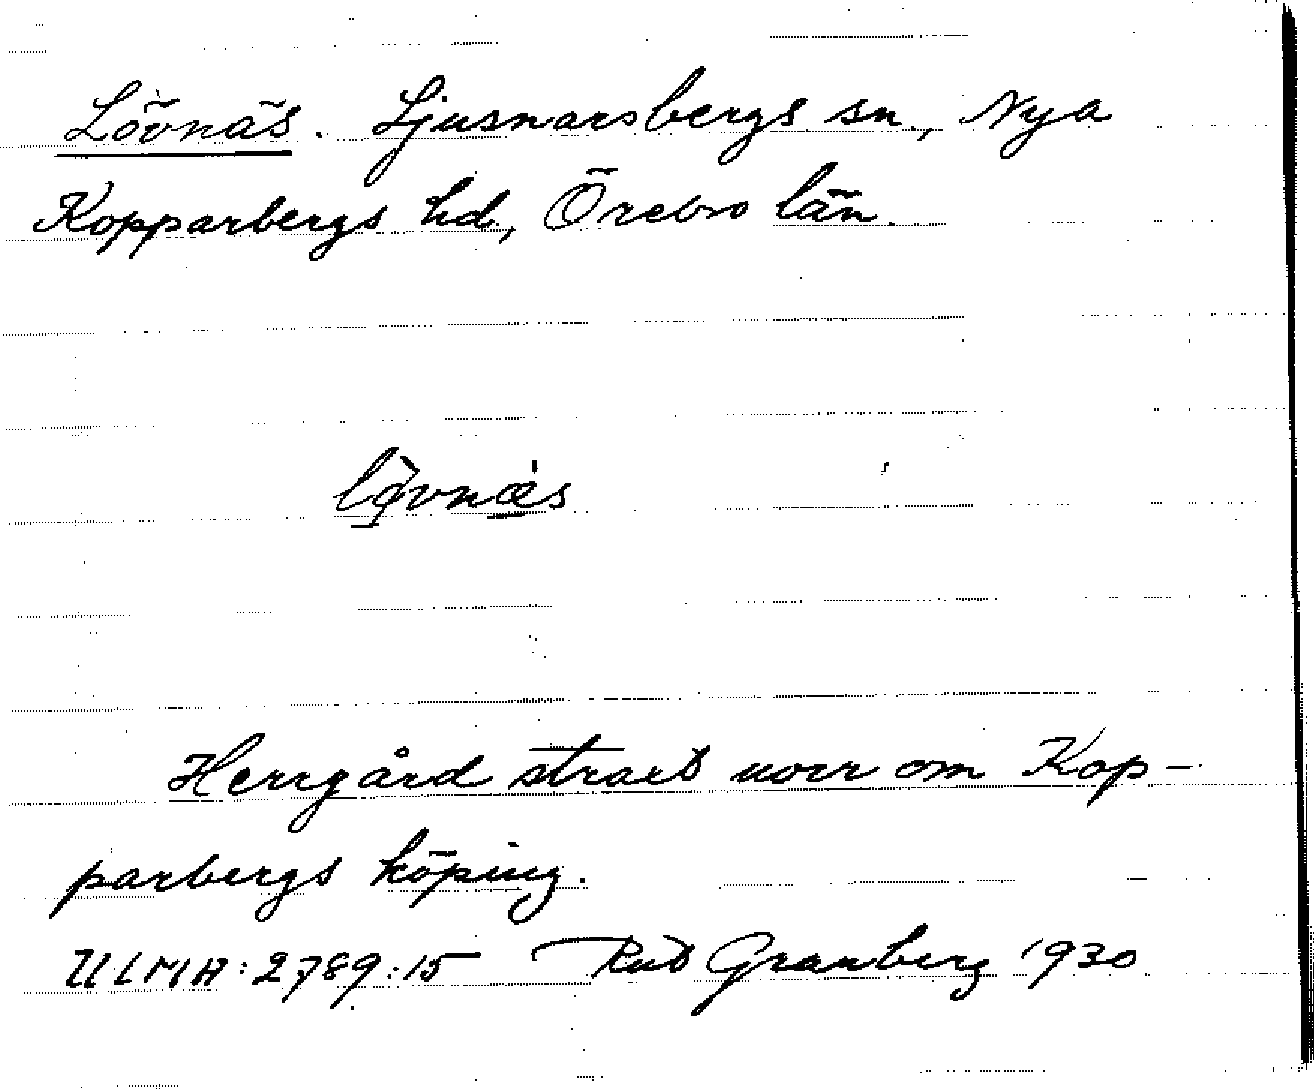 Lövnäs. Ljusnarsbergs sn., Nya
Kopparbergs hd, Örebro län.
lø̀vnæ̀s
Herrgård strax norr om Kop-
parbergs köping.
ULMA: 2789:15 Rut Granberg 1930